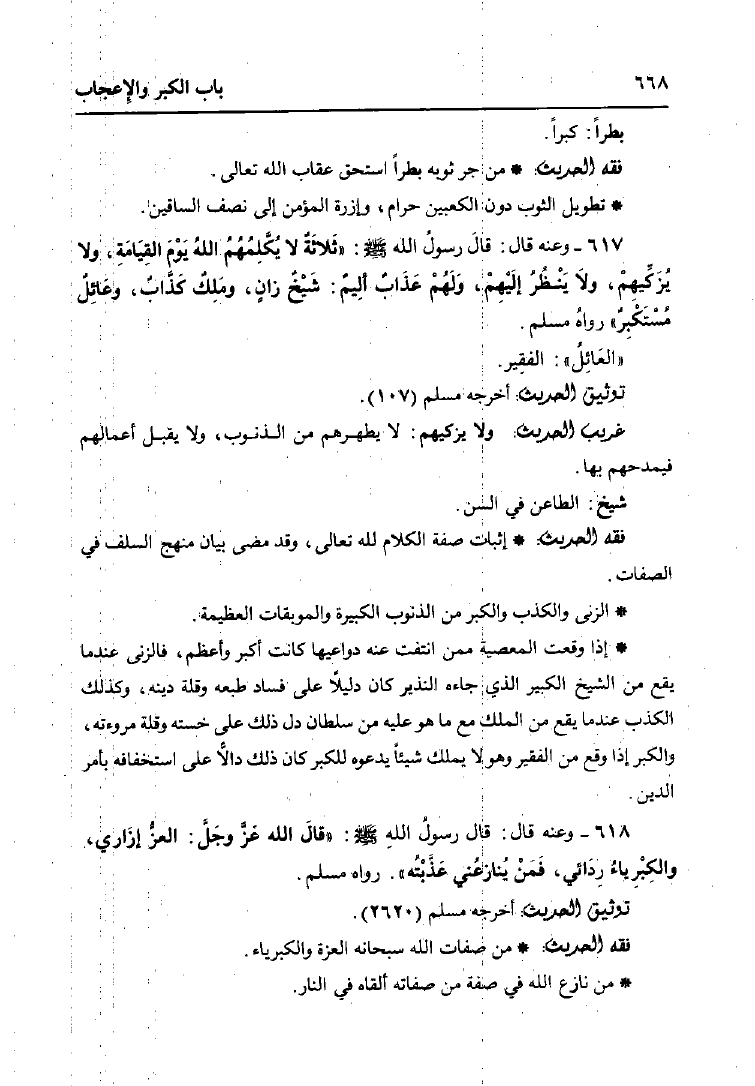 ٦٦٨
باب الكبر والإعجاب
بطراً: كبراً.
فقه الحديث: * من جر ثوبه بطراً استحق عقاب الله تعالى.
* تطويل الثوب دون الكعبين حرام، وإزرة المؤمن إلى نصف الساقين.
٦١٧ ـ وعنه قال: قالَ رسولُ الله ﷺ: «ثَلاثَةٌ لا يُكَلِّمُهُمُ اللهُ يَوْمَ القِيامَةِ، ولا
يُزَكِّيهِمْ، ولاَ يَنْظُرُ إلَيْهِمْ، وَلَهُمْ عَذَابٌ أَلِيمٌ: شَيْخٌ زانٍ، ومَلِكٌ كَذَّابٌ، وعَائِلٌ
مُسْتَكْبِرٌ» رواهُ مسلم.
«العَائِلُ»: الفقِير.
توثيق الحديث: أخرجه مسلم (١٠٧).
غريب الحديث: ولا يزكيهم: لا يطهرهم من الذنوب، ولا يقبل أعمالهم
فيمدحهم بها.
شيخ: الطاعن في السن.
فقه الحديث: * إثبات صفة الكلام لله تعالى، وقد مضى بيان منهج السلف في
الصفات.
* الزنى والكذب والكبر من الذنوب الكبيرة والموبقات العظيمة.
* إذا وقعت المعصية ممن انتفت عنه دواعيها كانت أكبر وأعظم، فالزنى عندما
يقع من الشيخ الكبير الذي جاءه النذير كان دليلاً على فساد طبعه وقلة دينه، وكذلك
الكذب عندما يقع من الملك مع ما هو عليه من سلطان دل ذلك على خسته وقلة مروءته،
والكبر إذا وقع من الفقير وهو لا يملك شيئاً يدعوه للكبر كان ذلك دالاًّ على استخفافه بأمر
الدين.
٦١٨ ـ وعنه قال: قال رسولُ اللهِ ﷺ: «قالَ الله عَزَّ وجَلَّ: العزُّ إزَاري،
والكِبْرِياءُ رِدَائي، فَمَنْ يُنازعُني عَذَّبْتُه». رواه مسلم.
توثيق الحديث: أخرجه مسلم (٢٦٢٠).
فقه الحديث: * من صفات الله سبحانه العزة والكبرياء.
* من نازع الله في صفة من صفاته ألقاه في النار.